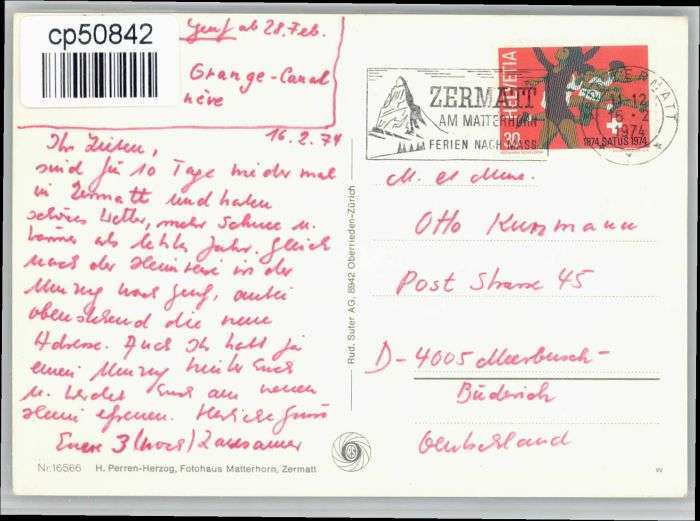 cp50842
Genf ab 28. Feb.
Grange-Canal
nève
16.2.74
Ihr Lieben,
sind für 10 Tage wieder mal
in Zermatt und haben
schönes Wetter, mehr Schnee u.
wärmer als letztes Jahr. Gleich
nach der Heimreise ist der
Umzug nach Genf, anbei
obenstehend die neue
Adresse. Auch Ihr habt ja
einen Umzug hinter Euch
u. werdet Euch am neuen
Heim erfreuen. Herzliche Grüsse
Eure 3 (noch)
Nr. 16566 H. Perren-Herzog, Fotohaus Matterhorn, Zermatt
Rud. Suter AG, 8942 Oberrieden-Zürich
ZERMATT
AM MATTERHORN
FERIEN NACH MASS
HELVETIA
30
1874 SATUS 1974
ZERMATT
-12
15.2
1974
M. et Mme.
Otto Kunzmann
Post Strasse 45
D-4005 Meerbusch-
Büderich
Deutschland
W